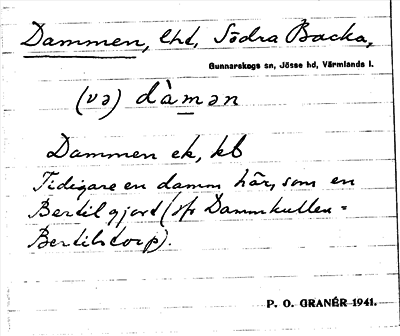 Dammen, lht, Södra Backa,
Gunnarskogs sn, Jösse hd, Värmlands l.
(və) dàmən
Dammen ek, kb
Tidigare en damm här, som en
Bertil gjort (jfr Dammkullen =
Bertilstorp).
P. O. GRANÉR 1941.